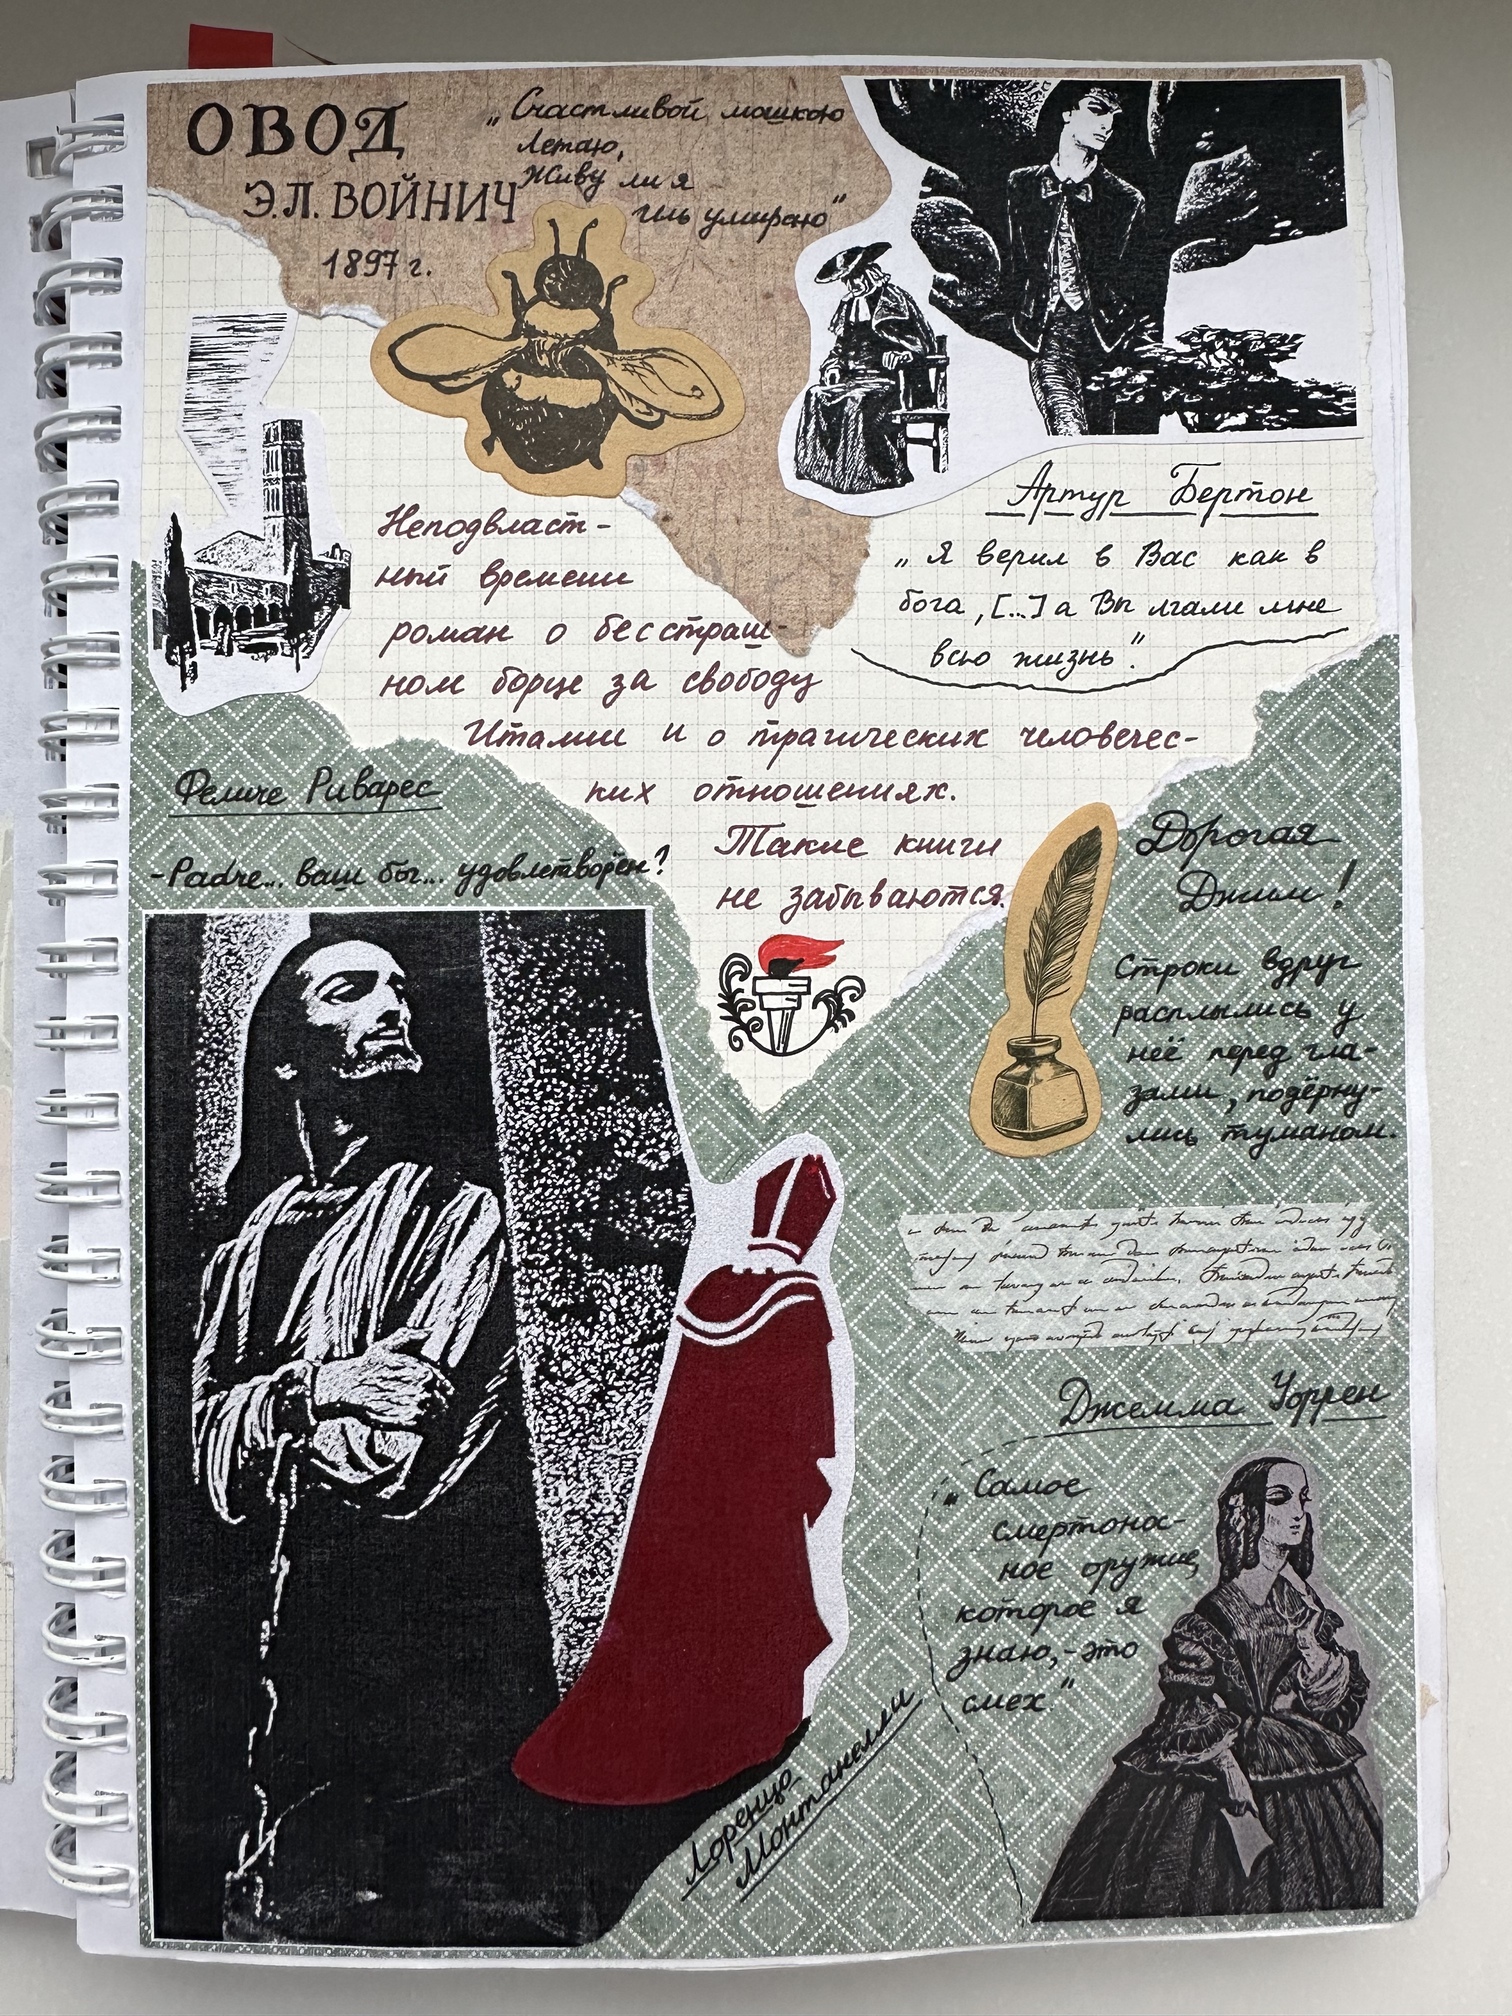 ОВОД
Э.Л. ВОЙНИЧ
1897 г.
„Счастливой мошкою
Летаю,
Живу ли я
Иль умираю"
Артур Бертон
„Я верил в Вас как в
бога, [...] а Вы лгали мне
всю жизнь".
Неподвласт-
ный времени
роман о бесстраш-
ном борце за свободу
Италии и о трагических человечес-
ких отношениях.
Такие книги
не забываются.
Феличе Риварес
-Padre... ваш бог... удовлетворён?
Дорогая
Джим!
Строки вдруг
расплылись у
неё перед гла-
зами, подёрну-
лись туманом.
Джемма Уоррен
„Самое
смертонос-
ное оружие,
которое я
знаю,-это
смех."
Лоренцо
Монтанелли